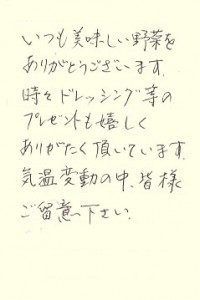 いつも美味しい野菜を
ありがとうございます.
時々ドレッシング等の
プレゼントも嬉しく
ありがたく頂いています.
気温変動の中、皆様
ご留意下さい.